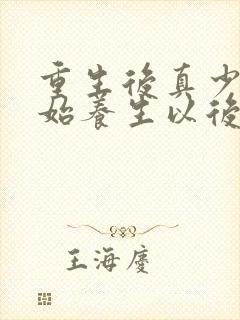 重生後真少
始養生以後
王海慶